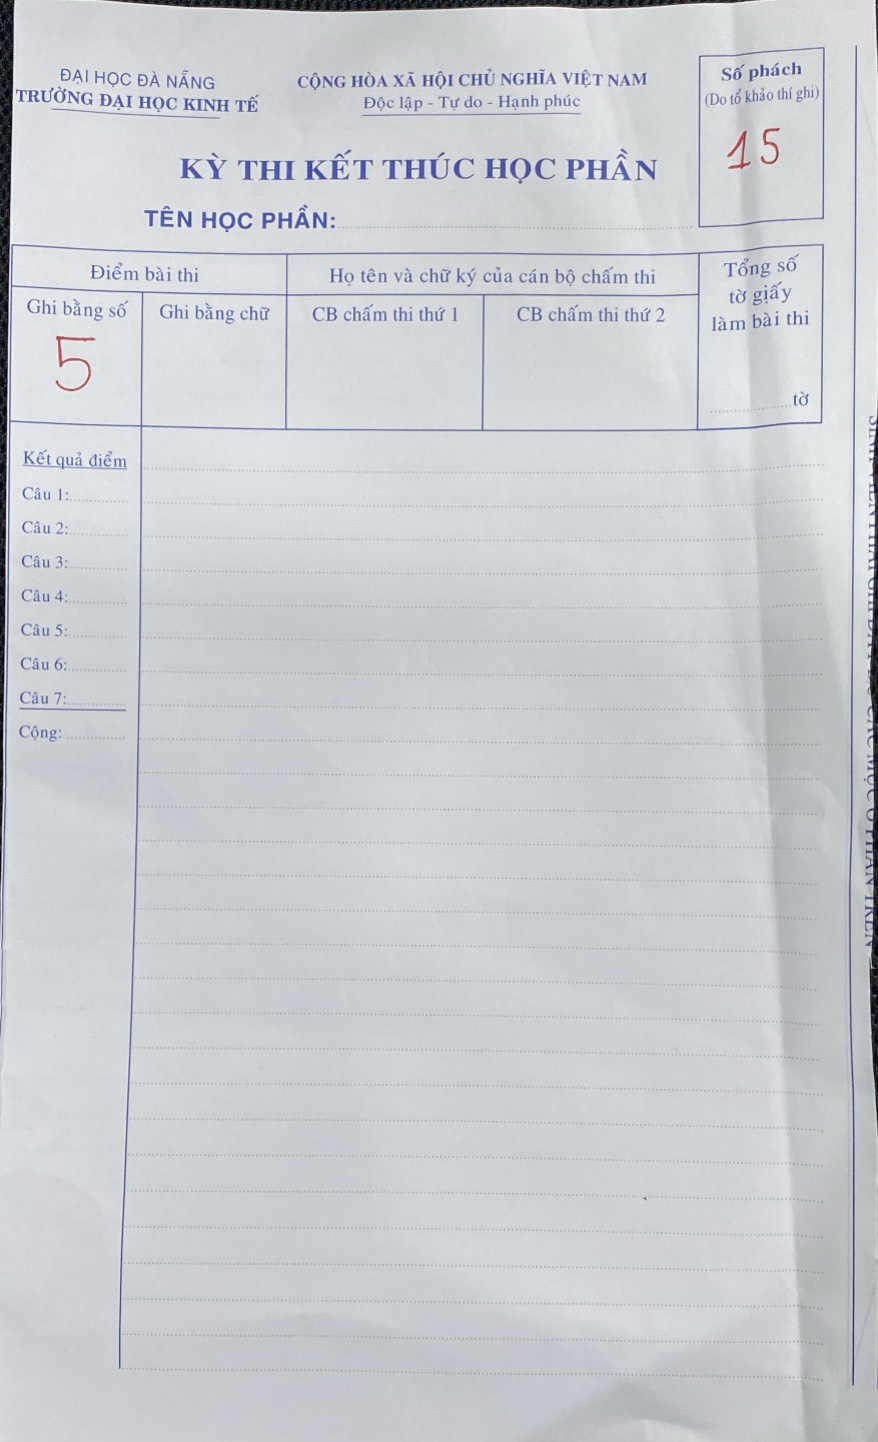 ĐẠI HỌC ĐÀ NẴNG
TRƯỜNG ĐẠI HỌC KINH TẾ
CỘNG HÒA XÃ HỘI CHỦ NGHĨA VIỆT NAM
Độc lập - Tự do - Hạnh phúc
Số phách
(Do tổ khảo thí ghi)
15
KỲ THI KẾT THÚC HỌC PHẦN
TÊN HỌC PHẦN:
Điểm bài thi
Họ tên và chữ ký của cán bộ chấm thi
Tổng số
tờ giấy
làm bài thi
Ghi bằng số
Ghi bằng chữ
CB chấm thi thứ 1
CB chấm thi thứ 2
5
tờ
Kết quả điểm
Câu 1:
Câu 2:
Câu 3:
Câu 4:
Câu 5:
Câu 6:
Câu 7:
Cộng: